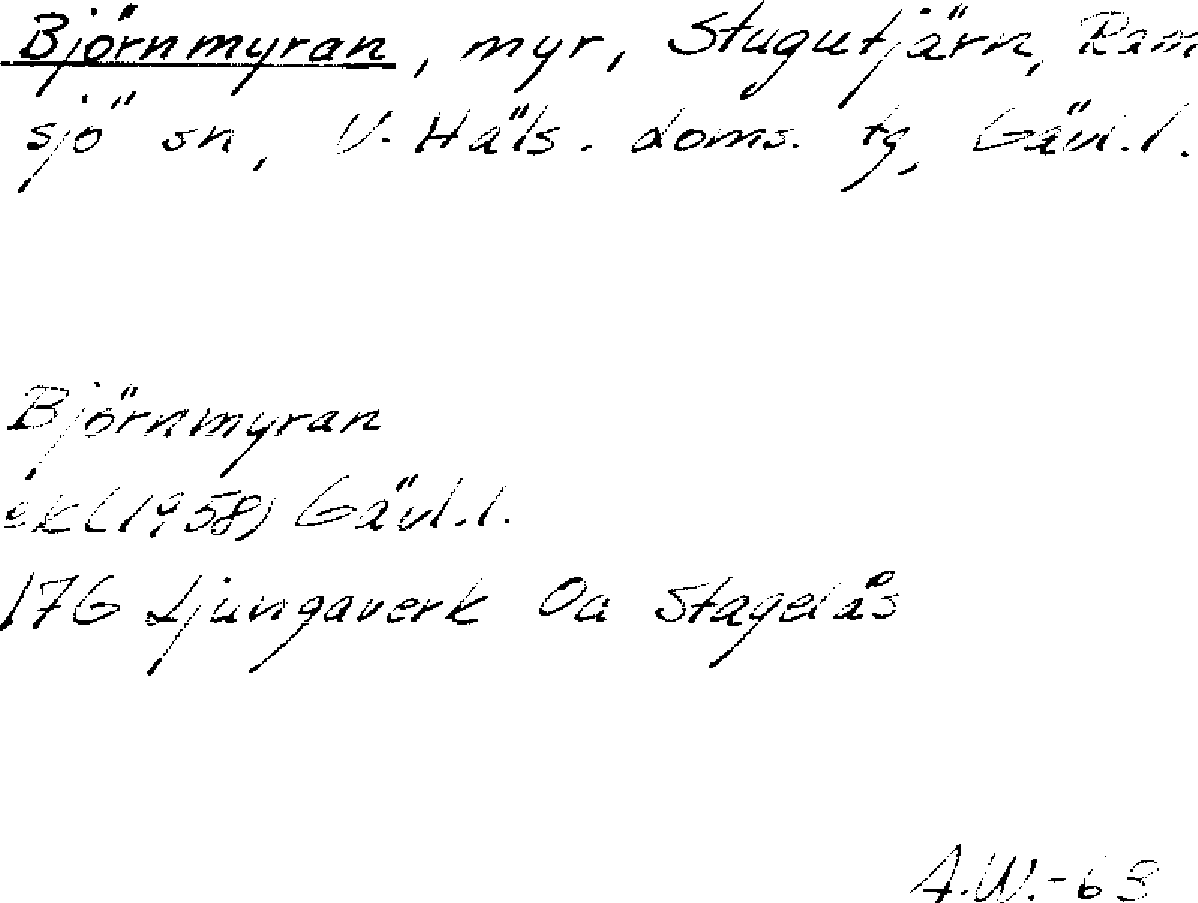 Björnmyran, myr, Stugutjärn, Ram
sjö sn, V. Häls. doms. tg, Gävl.l.
Björnmyran
ek (1958) Gävl.l.
17G Ljungaverk Oa Stagelås
A.W.-63